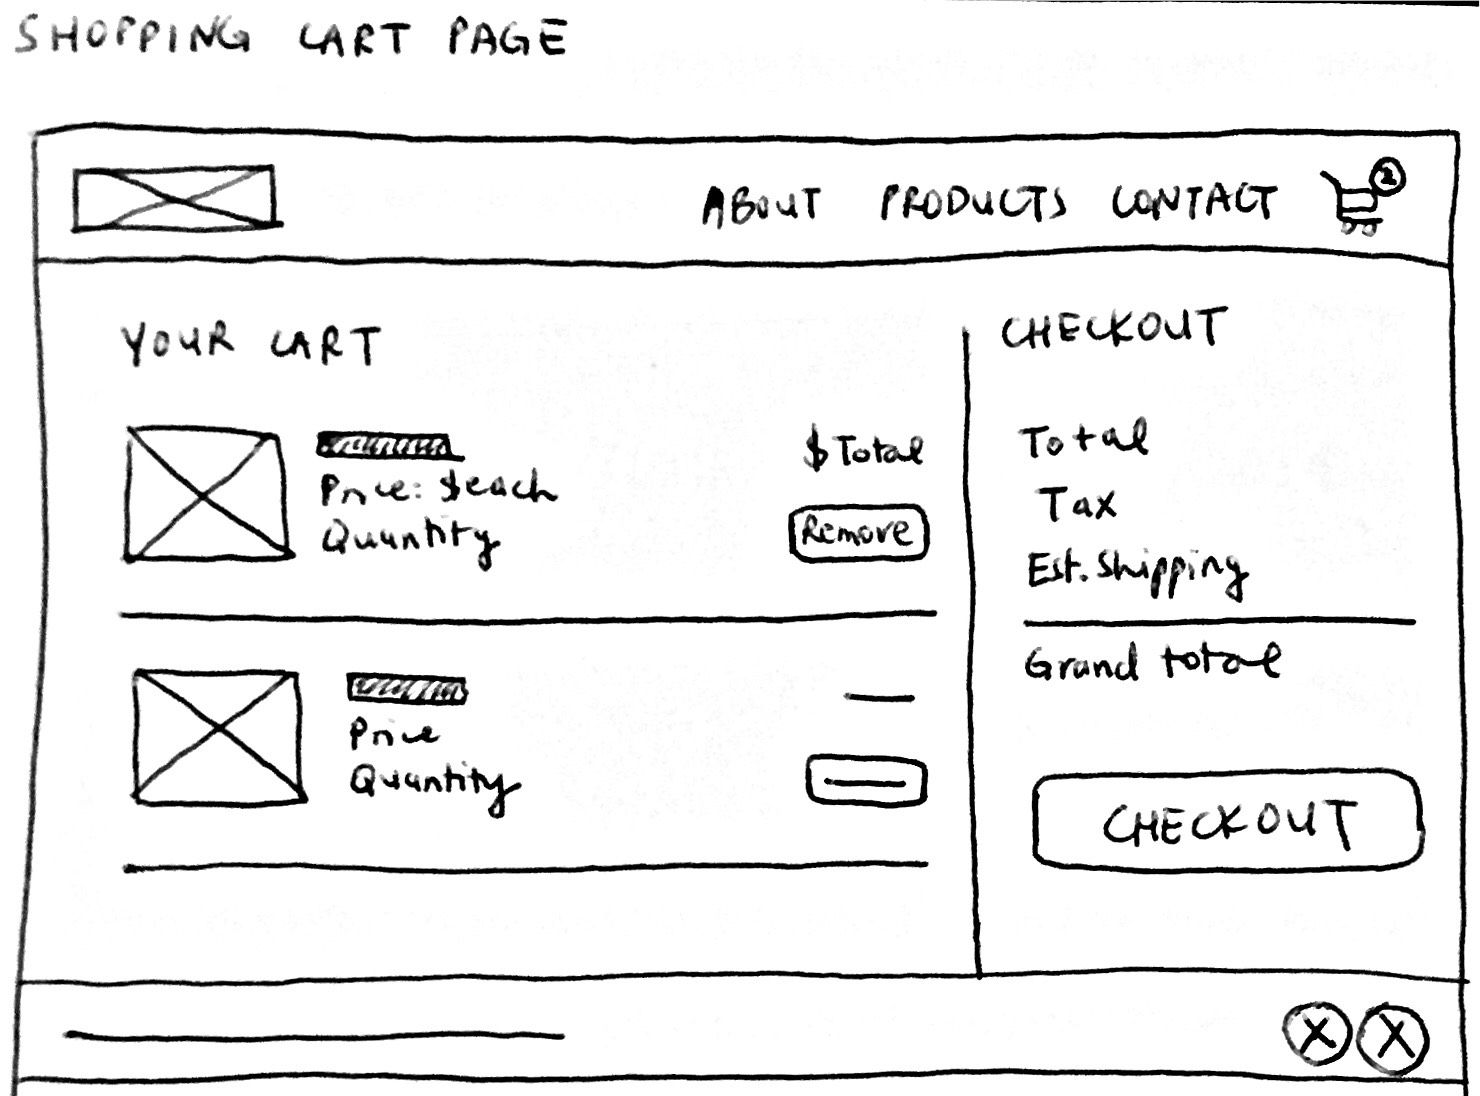 SHOPPING CART PAGE
ABOUT PRODUCTS CONTACT 2
YOUR CART
Price: $each
Quantity
$Total
Remove
Price
Quantity
CHECKOUT
Total
Tax
Est. Shipping
Grand total
CHECKOUT
X X